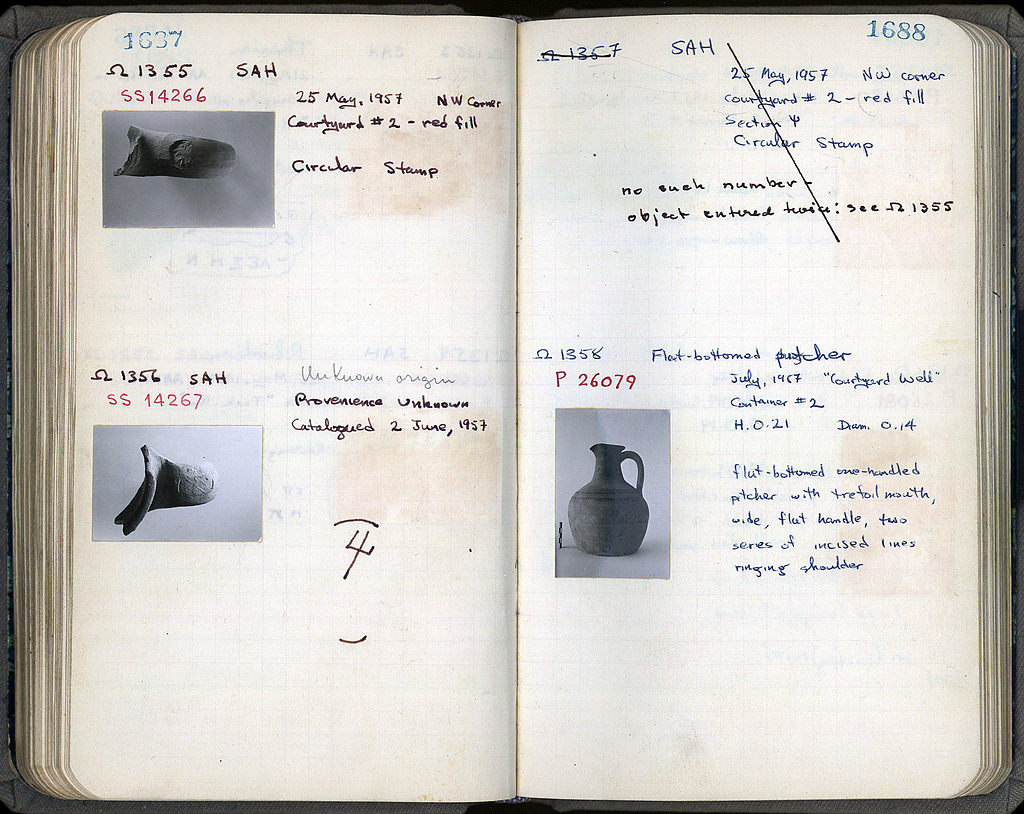 1637
Ω 1355 SAH
SS14266
25 May, 1957 NW Corner
Courtyard # 2 - red fill
Circular Stamp
Ω 1356 SAH
SS 14267
Unknown origin
Provenience unknown
Catalogued 2 June, 1957
1688
Ω 1357 SAH
25 May, 1957 NW corner
courtyard # 2 - red fill
Section Ψ
Circular Stamp
no such number -
object entered twice: see Ω 1355
Ω 1358 Flat-bottomed pitcher
P 26079
July, 1957 "Courtyard Well"
Container #2
H. 0.21 Diam. 0.14
flat-bottomed one-handled
pitcher with trefoil mouth,
wide, flat handle, two
series of incised lines
ringing shoulder